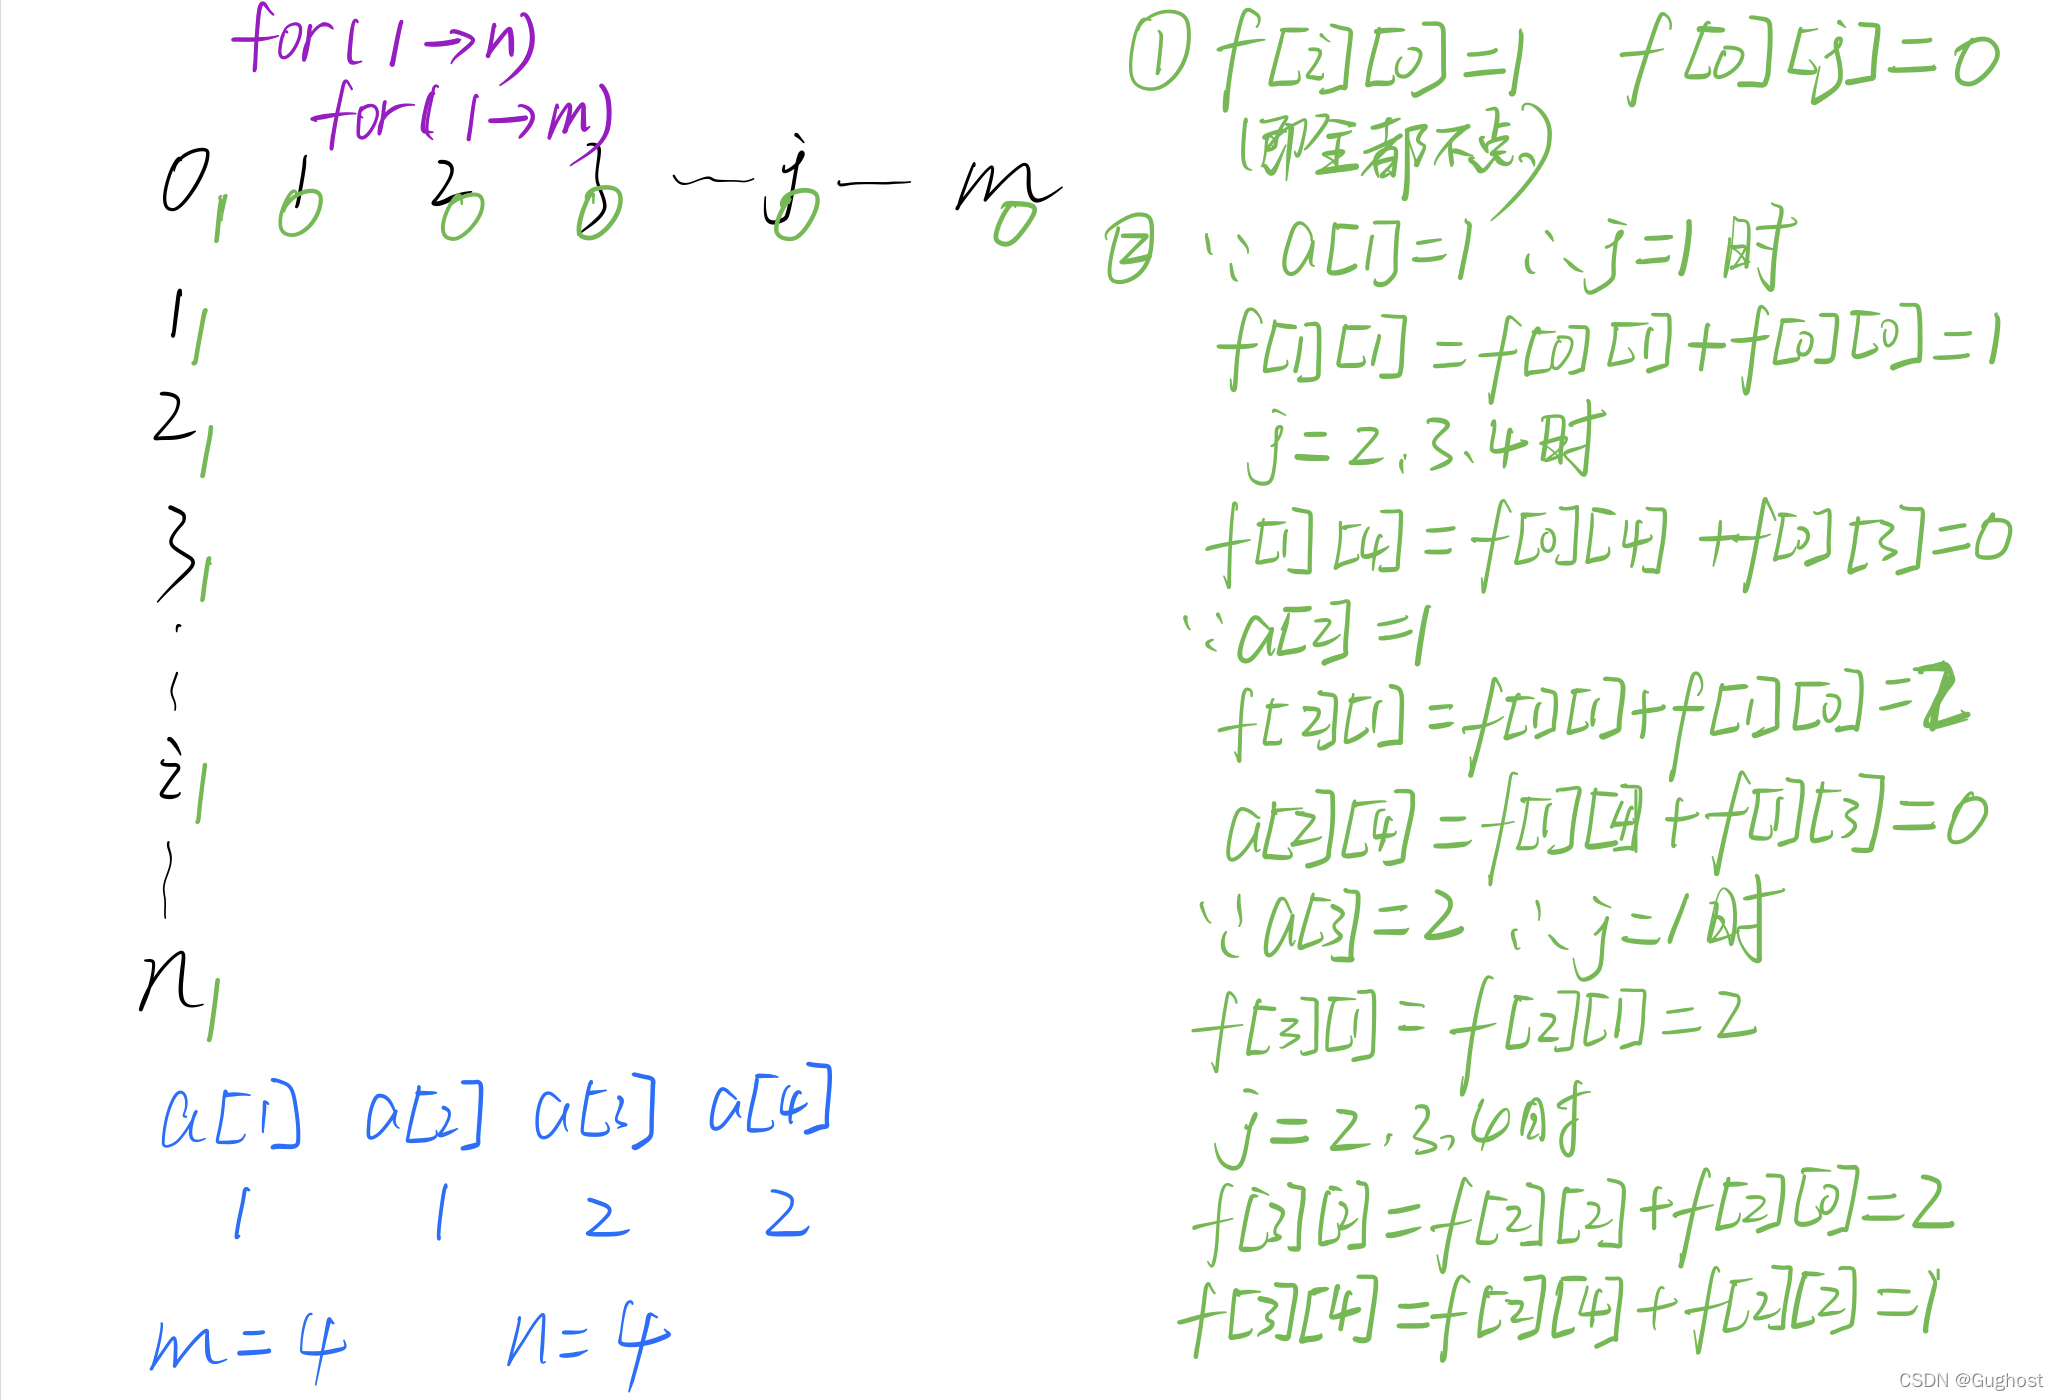 for(1→n)
for(1→m)
0, 1 2 3 — j — m
1 0 0 0 0 0
1, 1
2, 1
3, 1
i 1
n 1
a[1] a[2] a[3] a[4]
1 1 2 2
m=4 n=4
① f[i][0]=1 f[0][j]=0
(即全都不点)
② ∵ a[1]=1 ∴ j=1时
f[1][1]=f[0][1]+f[0][0]=1
j=2、3、4时
f[1][4]=f[0][4]+f[0][3]=0
∵a[2]=1
f[2][1]=f[1][1]+f[1][0]=2
a[2][4]=f[1][4]+f[1][3]=0
∵a[3]=2 ∴j=1时
f[3][1]=f[2][1]=2
j=2、3、4时
f[3][2]=f[2][2]+f[2][0]=2
f[3][4]=f[2][4]+f[2][2]=1
CSDN @Gughost